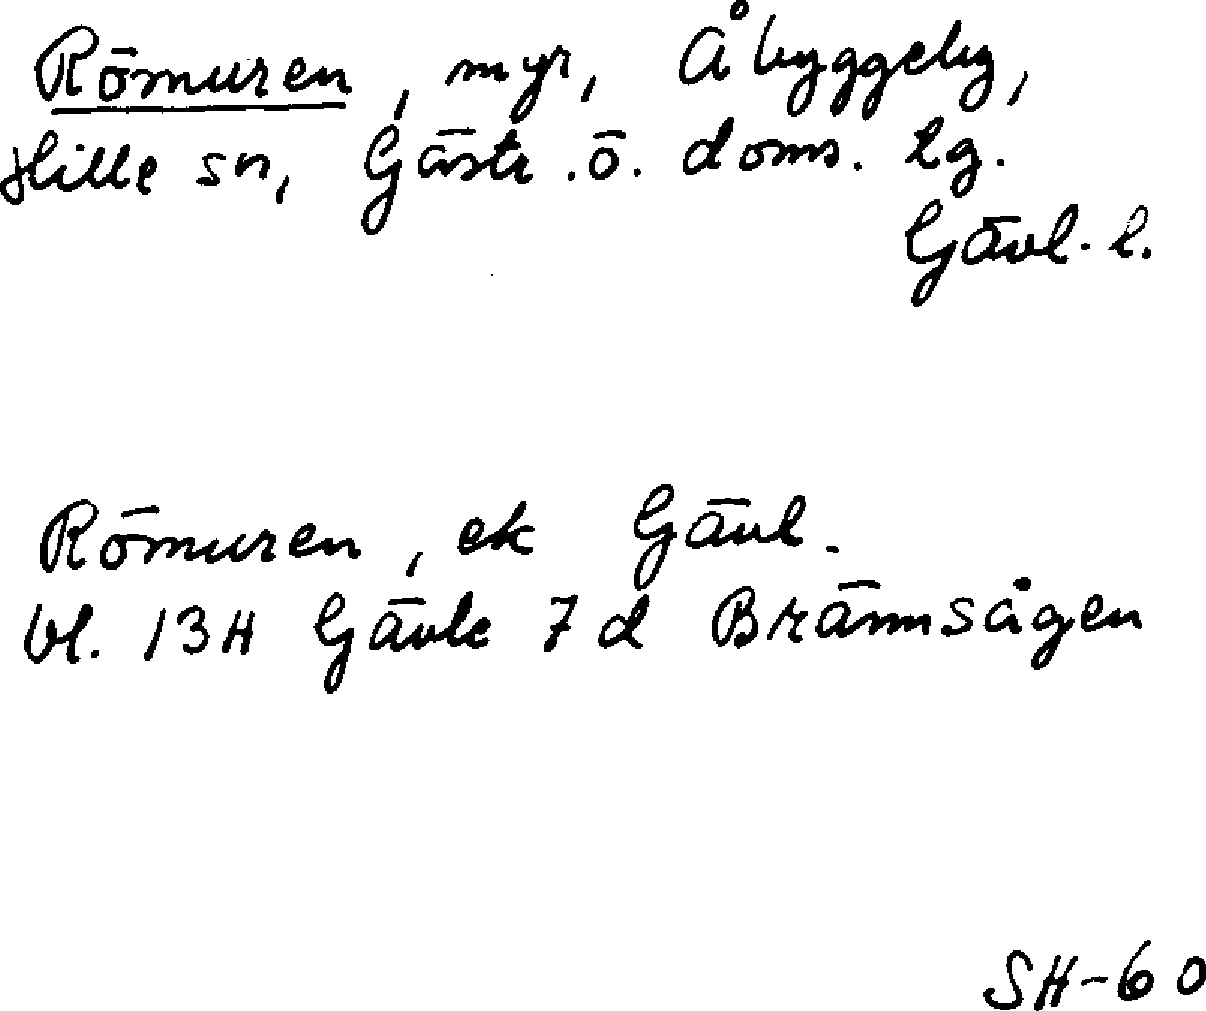 Römuren, myr, Åbyggeby,
Hille sn, Gästr. ö. doms. lg.
Gävl. l.
Römuren, ek Gävl.
bl. 13H Gävle 7 d Brännsågen
SH-60